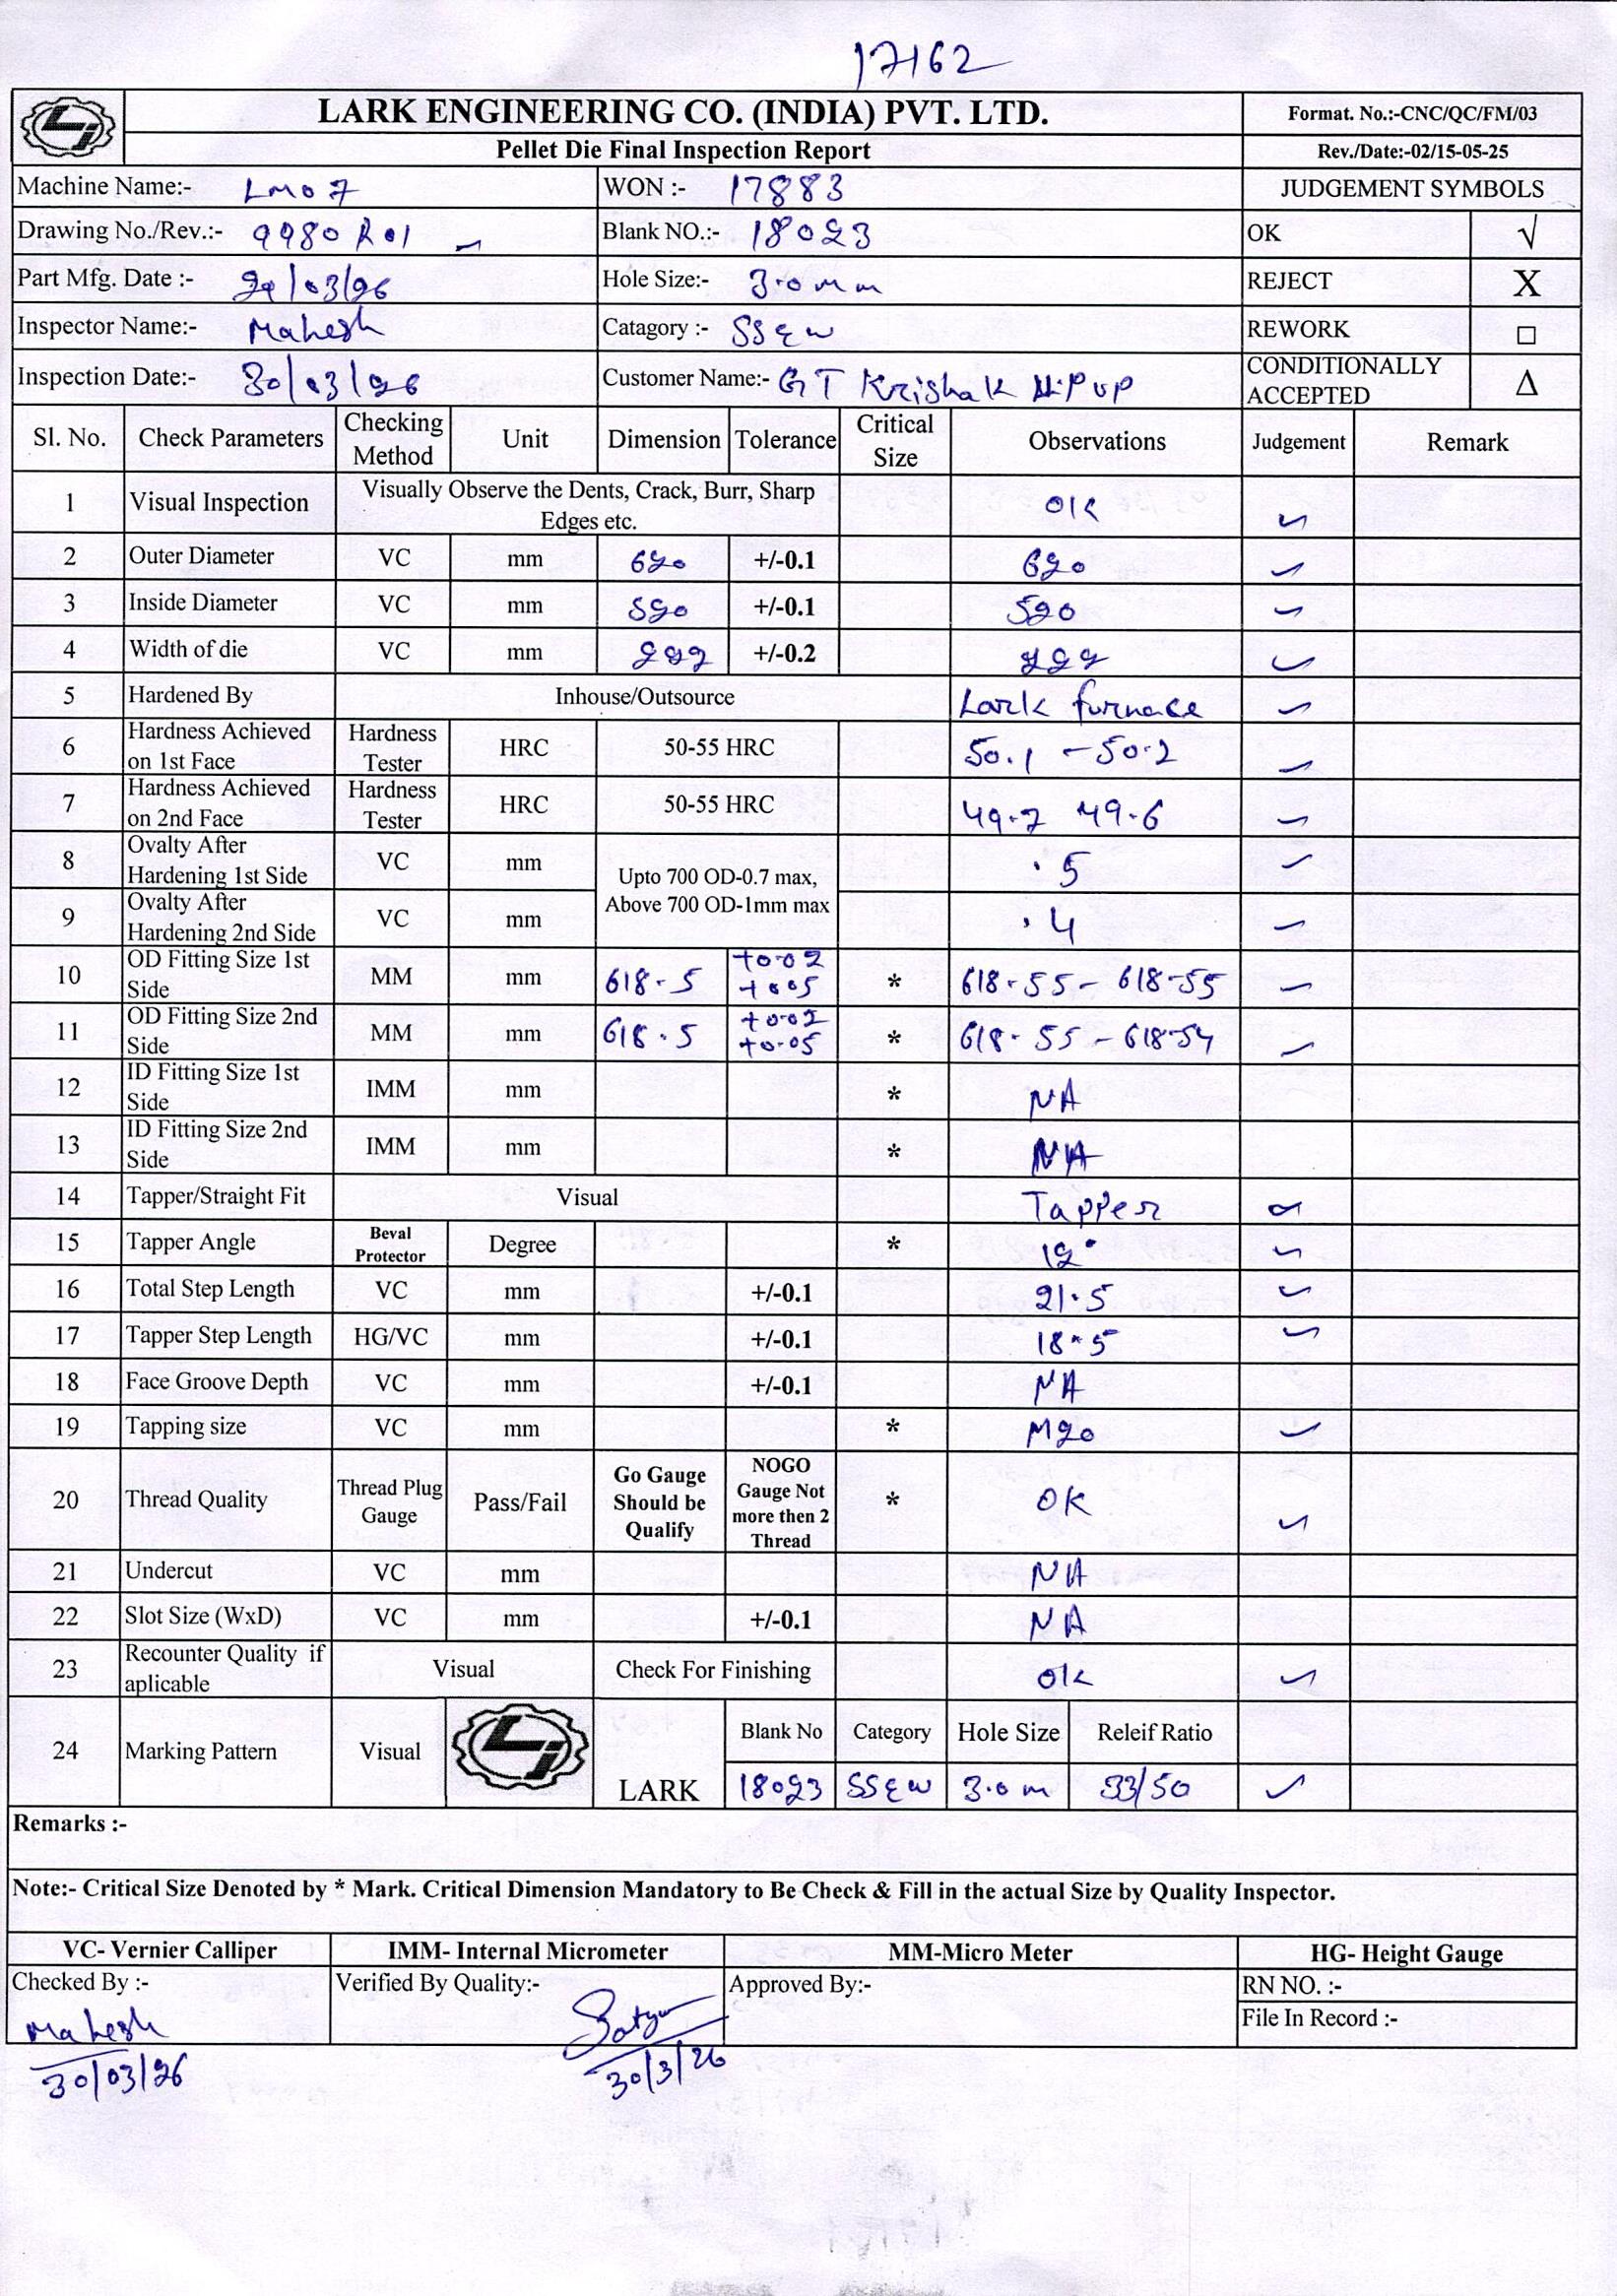 17162
LARK ENGINEERING CO. (INDIA) PVT. LTD.
Format. No.:-CNC/QC/FM/03
Pellet Die Final Inspection Report
Rev./Date:-02/15-05-25
Machine Name:- LM07 WON :- 17883 JUDGEMENT SYMBOLS
Drawing No./Rev.:- 9980 R01 Blank NO.:- 18023 OK √
Part Mfg. Date :- 29/03/26 Hole Size:- 3.0 mm REJECT X
Inspector Name:- Mahesh Catagory :- SSEW REWORK □
Inspection Date:- 30/03/26 Customer Name:- GT Krishak CONDITIONALLY ACCEPTED Δ
Sl. No. Check Parameters Checking Method Unit Dimension Tolerance Critical Size Observations Judgement Remark
1 Visual Inspection Visually Observe the Dents, Crack, Burr, Sharp Edges etc. OK ✓
2 Outer Diameter VC mm 620 +/-0.1 620 ✓
3 Inside Diameter VC mm 520 +/-0.1 520 ✓
4 Width of die VC mm +/-0.2 ✓
5 Hardened By Inhouse/Outsource Lark furnace ✓
6 Hardness Achieved on 1st Face Hardness Tester HRC 50-55 HRC 50.1 - 50.2 ✓
7 Hardness Achieved on 2nd Face Hardness Tester HRC 50-55 HRC 49.7 49.6 ✓
8 Ovalty After Hardening 1st Side VC mm Upto 700 OD-0.7 max, Above 700 OD-1mm max .5 ✓
9 Ovalty After Hardening 2nd Side VC mm .4 ✓
10 OD Fitting Size 1st Side MM mm 618.5 +0.02 +0.05 * 618.55 - 618.55 ✓
11 OD Fitting Size 2nd Side MM mm 618.5 +0.02 +0.05 * 618.55 - 618.54 ✓
12 ID Fitting Size 1st Side IMM mm * NA
13 ID Fitting Size 2nd Side IMM mm * NA
14 Tapper/Straight Fit Visual Tapper ✓
15 Tapper Angle Beval Protector Degree * 12° ✓
16 Total Step Length VC mm +/-0.1 21.5 ✓
17 Tapper Step Length HG/VC mm +/-0.1 18.5 ✓
18 Face Groove Depth VC mm +/-0.1 NA
19 Tapping size VC mm * M20 ✓
20 Thread Quality Thread Plug Gauge Pass/Fail Go Gauge Should be Qualify NOGO Gauge Not more then 2 Thread * OK ✓
21 Undercut VC mm NA
22 Slot Size (WxD) VC mm +/-0.1 NA
23 Recounter Quality if aplicable Visual Check For Finishing OK ✓
24 Marking Pattern Visual LARK Blank No Category Hole Size Releif Ratio
18023 SSEW 3.0 m 33/50 ✓
Remarks :-
Note:- Critical Size Denoted by * Mark. Critical Dimension Mandatory to Be Check & Fill in the actual Size by Quality Inspector.
VC- Vernier Calliper IMM- Internal Micrometer MM-Micro Meter HG- Height Gauge
Checked By :- Verified By Quality:- Approved By:- RN NO. :-
Mahesh Satyam File In Record :-
30/03/26 30/3/26